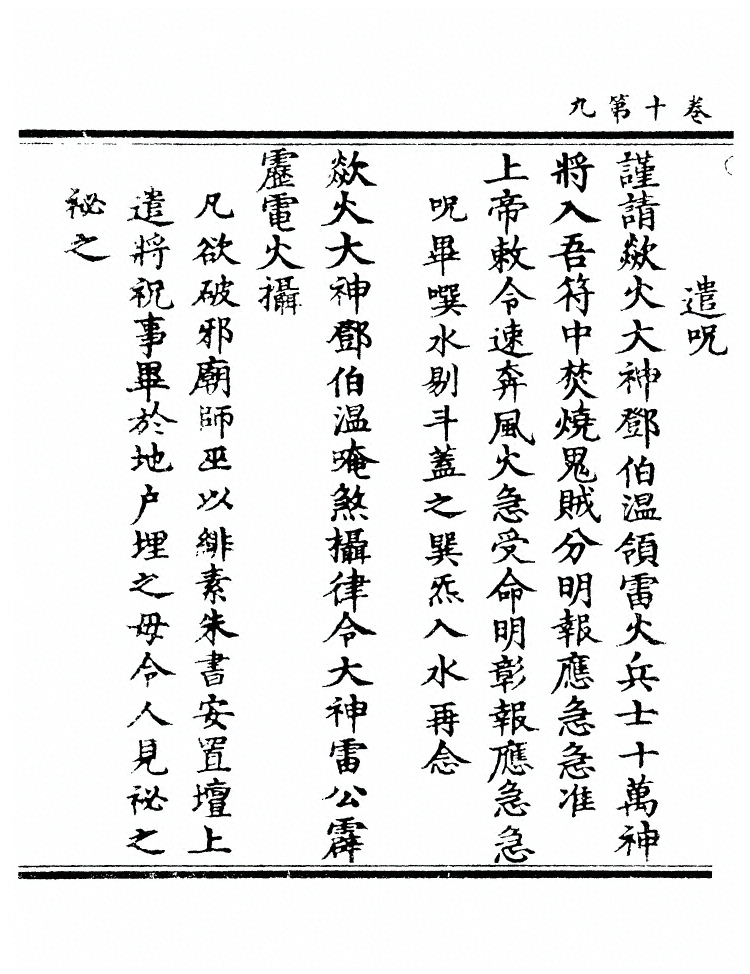 卷十第九
遣呪
謹請歘火大神鄧伯温領雷火兵士十萬神
將入吾符中焚燒鬼賊分明報應急急准
上帝敕令速奔風火急受命明彰報應急急
呪畢噀水剔斗蓋之巽炁入水再念
歘火大神鄧伯温唵煞攝律令大神雷公霹
靂電火攝
凡欲破邪廟師巫以緋素朱書安置壇上
遣將祝事畢於地户埋之毋令人見祕之
祕之